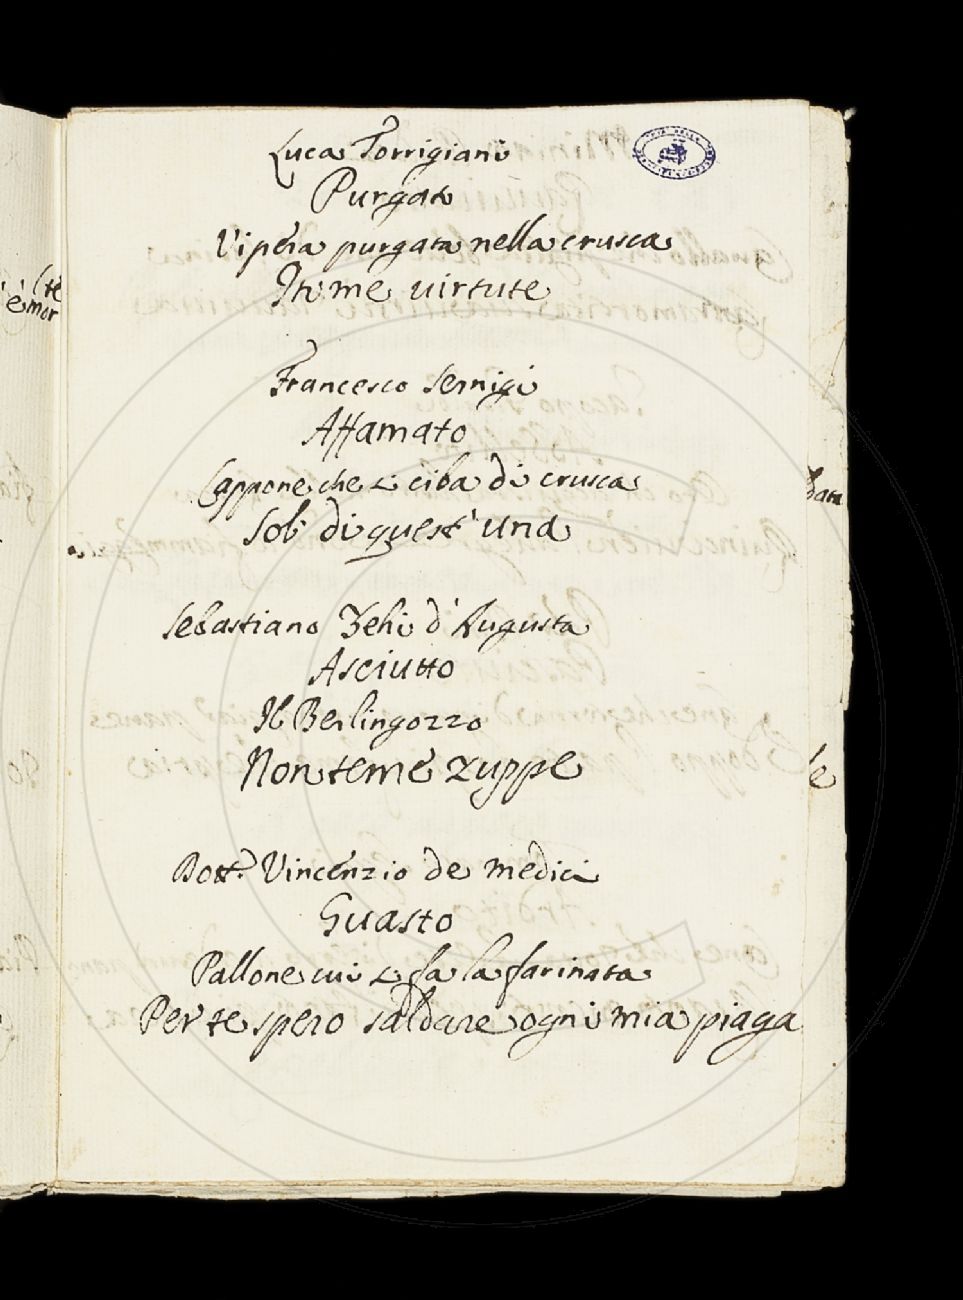 Luca Torrigiani
Purgato
Vipera purgata nella crusca
virtute
Francesco Sernigi
Affamato
Cappone che si ciba di crusca
Sol di quest' una
Sebastiano Zehi d'Augusta
Asciutto
Il Berlingozzo
Non teme zuppe
Dott.r Vincenzio de Medici
Guasto
Pallone cui si fa la farinata
Per te spero saldare ogni mia piaga